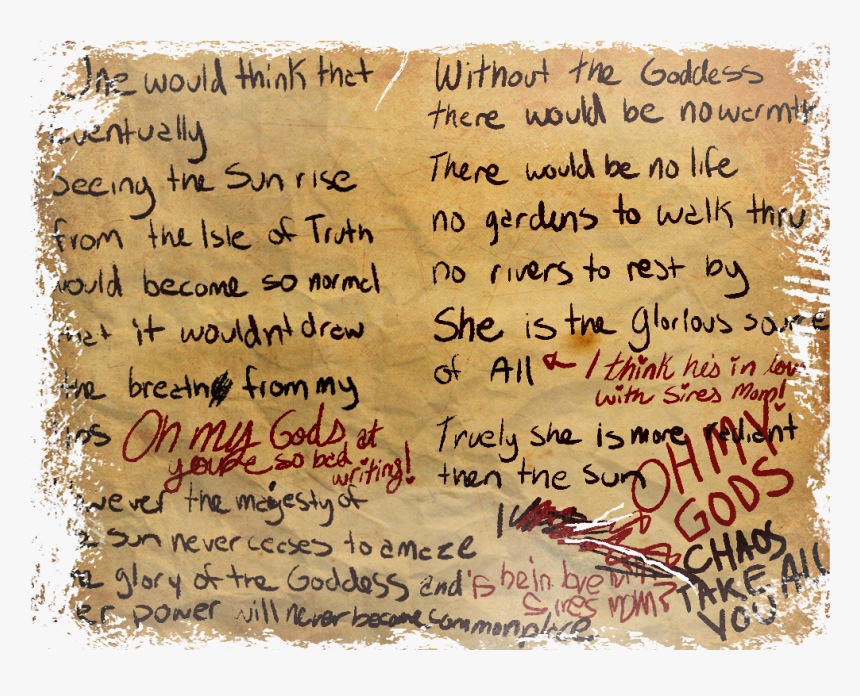 One would think that
eventually
seeing the Sun rise
from the Isle of Truth
would become so normal
that it wouldnt draw
the breath from my
lips
Oh my Gods at
you're so bad
writing!
However the majesty of
the sun never ceases to amaze
the glory of the Goddess and
her power will never become commonplace.
is he in love with
Sires mom?
Without the Goddess
there would be no warmth
There would be no life
no gardens to walk thru
no rivers to rest by
She is the glorious source
of All
I think he's in love
with Sires Mom!
Truely she is more radiant
then the Sun
OH MY
GODS
CHAOS
TAKE All
YOU